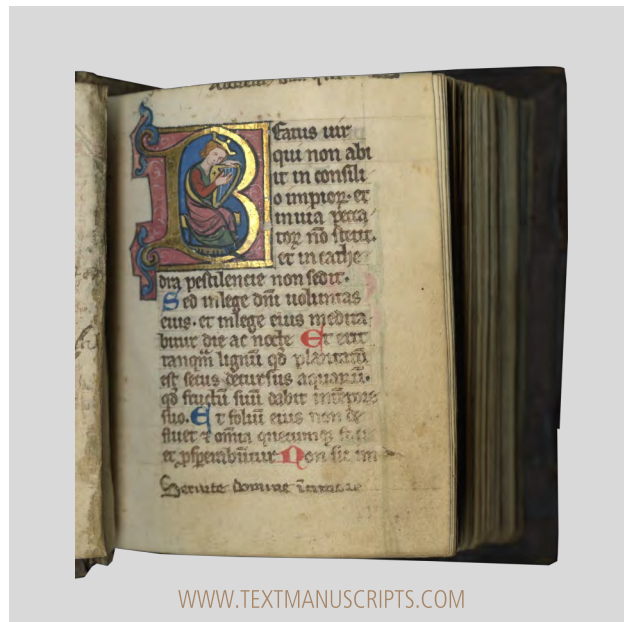 Beatus uir
qui non abi
it in consili
o impioꝝ. et
in uia pecca
toꝝ nõ stetit.
et in cathe
dra pestilencie non sedit.
Sed in lege dñi uoluntas
eius. et in lege eius medita
bitur die ac nocte Et erit
tanqm̃ lignũ qđ plantatũ
est secus decursus aquarũ.
qđ fructũ suũ dabit in tempore
suo. Et foliũ eius non de
fluet ⁊ om̃ia quecumqꝫ
et ꝓsperabũtur Non sic im
Seruite domino
WWW.TEXTMANUSCRIPTS.COM